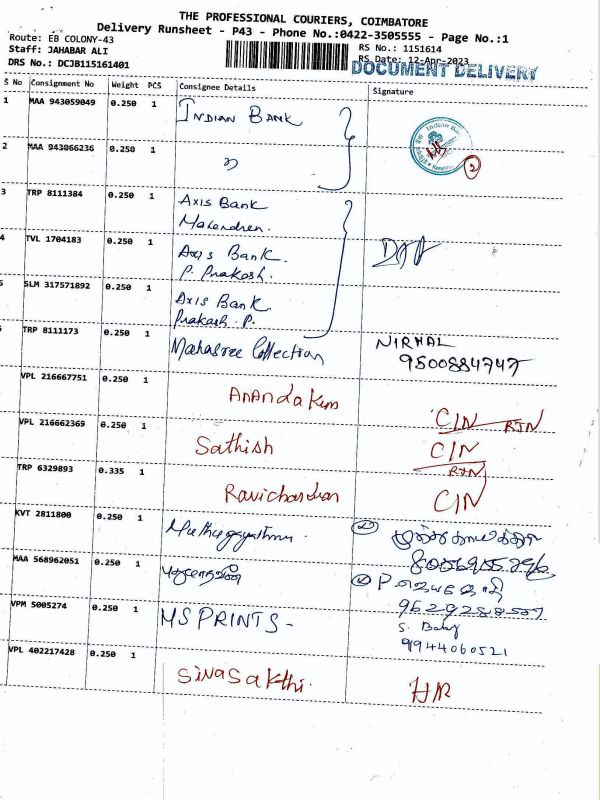 THE PROFESSIONAL COURIERS, COIMBATORE
Delivery Runsheet - P43 - Phone No.:0422-3505555 - Page No.:1
Route: EB COLONY-43
Staff: JAHABAR ALI
RS No.: 1151614
DRS No.: DCJB115161401
RS Date: 12-Apr-2023
DOCUMENT DELIVERY
S No Consignment No Weight PCS Consignee Details Signature
1 MAA 943059049 0.250 1 INDIAN BANK
2 MAA 943066236 0.250 1 2
3 TRP 8111384 0.250 1 Axis Bank
Mahendren.
4 TVL 1704183 0.250 1 Axis Bank.
P. Prakash.
5 SLM 317571892 0.250 1 Axis Bank
Prakash. P.
TRP 8111173 0.250 1 Mahasree Collection NIRMAL
9500884747
VPL 216667751 0.250 1 Anandakum C/N RTN
VPL 216662369 0.250 1 Sathish C/N
RTN
TRP 6329893 0.335 1 Ravichandran C/N
KVT 2811800 0.250 1
MAA 568962051 0.250 1
VPM 5005274 0.250 1 MS PRINTS - S. Baby
9944060521
VPL 402217428 0.250 1 SivaSakthi.